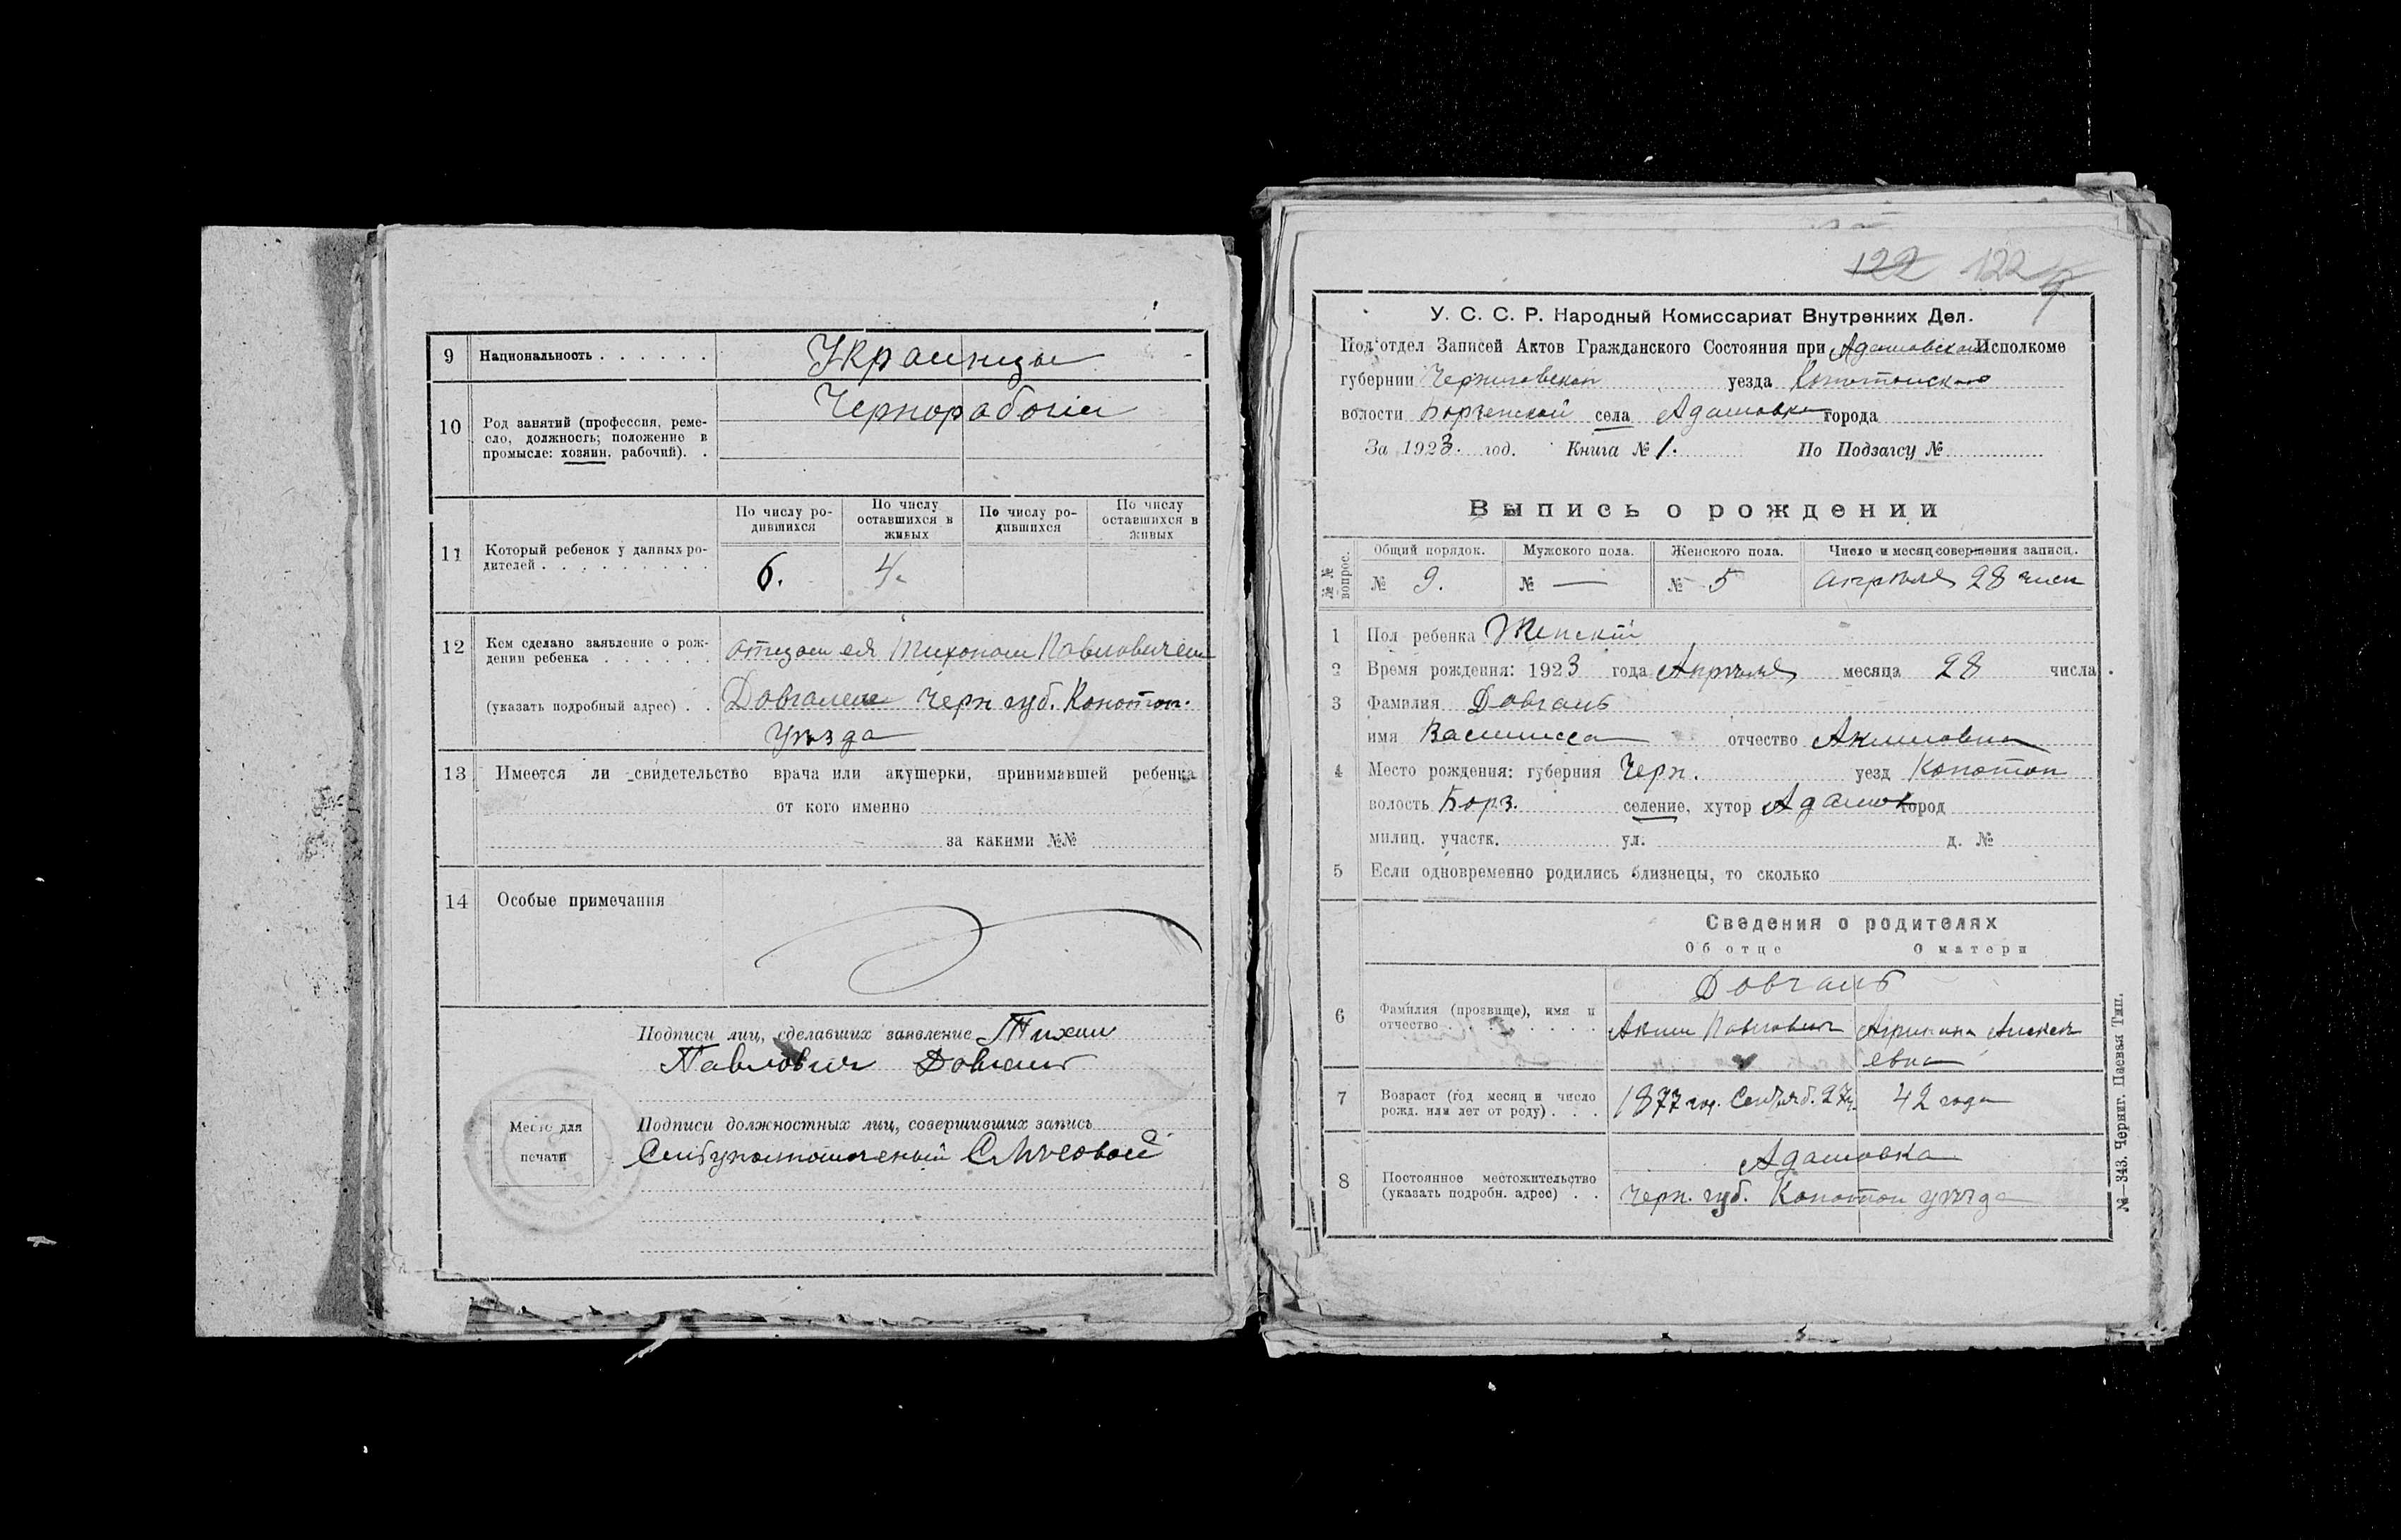 9 Национальность . . . . . . Украинцы
10 Род занятий (профессия, реме-
сло, должность; положение в
промысле: хозяин, рабочий). .
Чернорабочіи
11 Который ребенок у данных ро-
дителей . . . . . . . . . .
По числу ро-
дившихся
По числу
оставшихся в
живых
По числу ро-
дившихся
По числу
оставшихся в
живых
6. 4.
12 Кем сделано заявление о рож-
дении ребенка . . . . . .
отцом ея Тихоном Павловичем
(указать подробный адрес) . . Довгалем Черн губ. Конотоп.
уѣзда
13 Имеется ли свидетельство врача или акушерки, принимавшей ребенка
от кого именно
за какими №№
14 Особые примечания
Подписи лиц, сделавших заявление Тихон
Павлович Довгаль
Место для
печати
Подписи должностных лиц, совершивших запись
122 122
У. С. С. Р. Народный Комиссариат Внутренних Дел.
Под'отдел Записей Актов Гражданского Состояния при Адамовском Исполкоме
губернии Черниговской уезда Конотопского
волости Борзенской села Адамовка города
За 1923. год. Книга № 1. По Подзагсу №
Выпись о рождении
№ № вопрос.
Общий порядок. Мужского пола. Женского пола. Число и месяц совершения записи.
№ 9. № — № 5 апрѣля 28 числ
1 Пол ребенка Женскій
2 Время рождения: 1923 года Апрѣля месяца 28 числа
3 Фамилия Довгаль
имя Василисса отчество Акимовна
4 Место рождения: губерния Черн. уезд Конотоп
волость Борз. селение, хутор Адамов город
милиц. участк. ул. д. №
5 Если одновременно родились близнецы, то сколько
Сведения о родителях
Об отце О матери
Довгаль
6 Фамилия (прозвище), имя и
отчество . . . . . . . . .
Аким Павлович Агрипина Алексѣ
евна
7 Возраст (год месяц и число
рожд. или лет от роду) . . .
1877 год. Сентяб. 27ч. 42 года
8 Постоянное местожительство
(указать подробн. адрес) . .
Адамовка
Черн. губ. Конотоп уѣзда
№—343. Черниг. Паевая Тип.